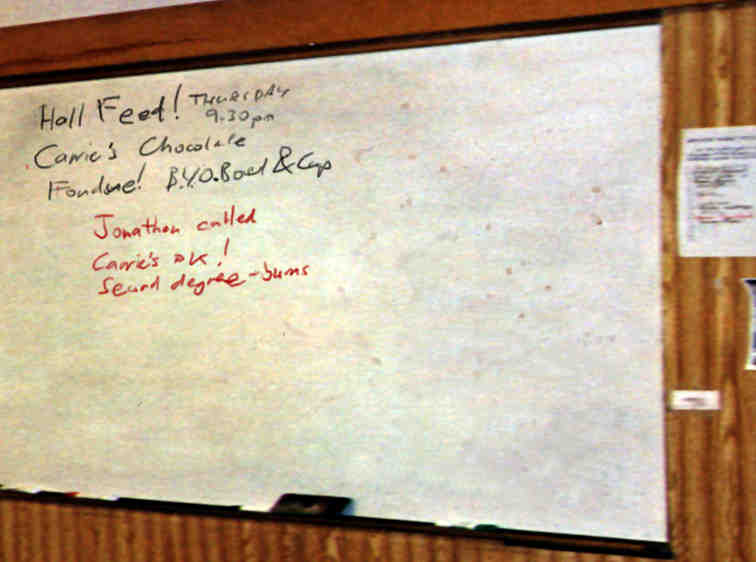 Hall Feed! THURSDAY
9:30pm
Carrie's Chocolate
Fondue! B.Y.O.Bowl & Cup
Jonathon called
Carrie's OK!
Second degree-burns